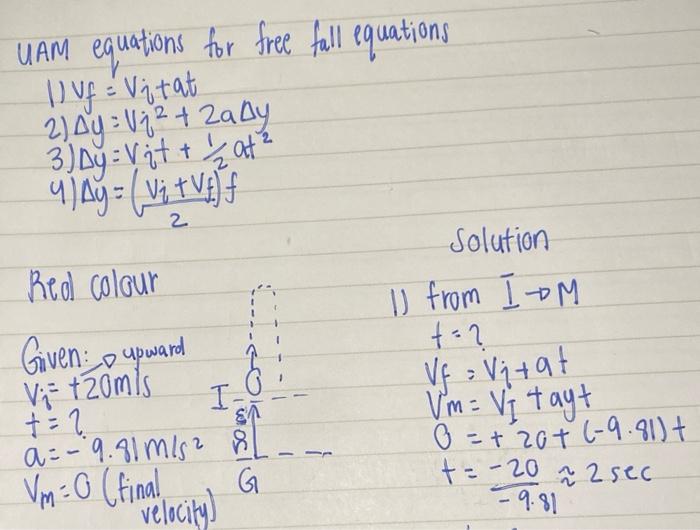 UAM equations for free fall equations
1) Vf = Vi + at
2) Δy = Vi² + 2aΔy
3) Δy = Vit + 1/2 at²
4) Δy = (Vi + Vf / 2) f
Red colour
Given: → upward
Vi = +20m/s
t = ?
a = - 9.81 m/s²
Vm = 0 (final velocity)
I
G
Solution
1) from I → M
t = ?
Vf = Vi + at
Vm = VI + ayt
0 = + 20 + (-9.81) t
t = -20 / -9.81 ≈ 2 sec